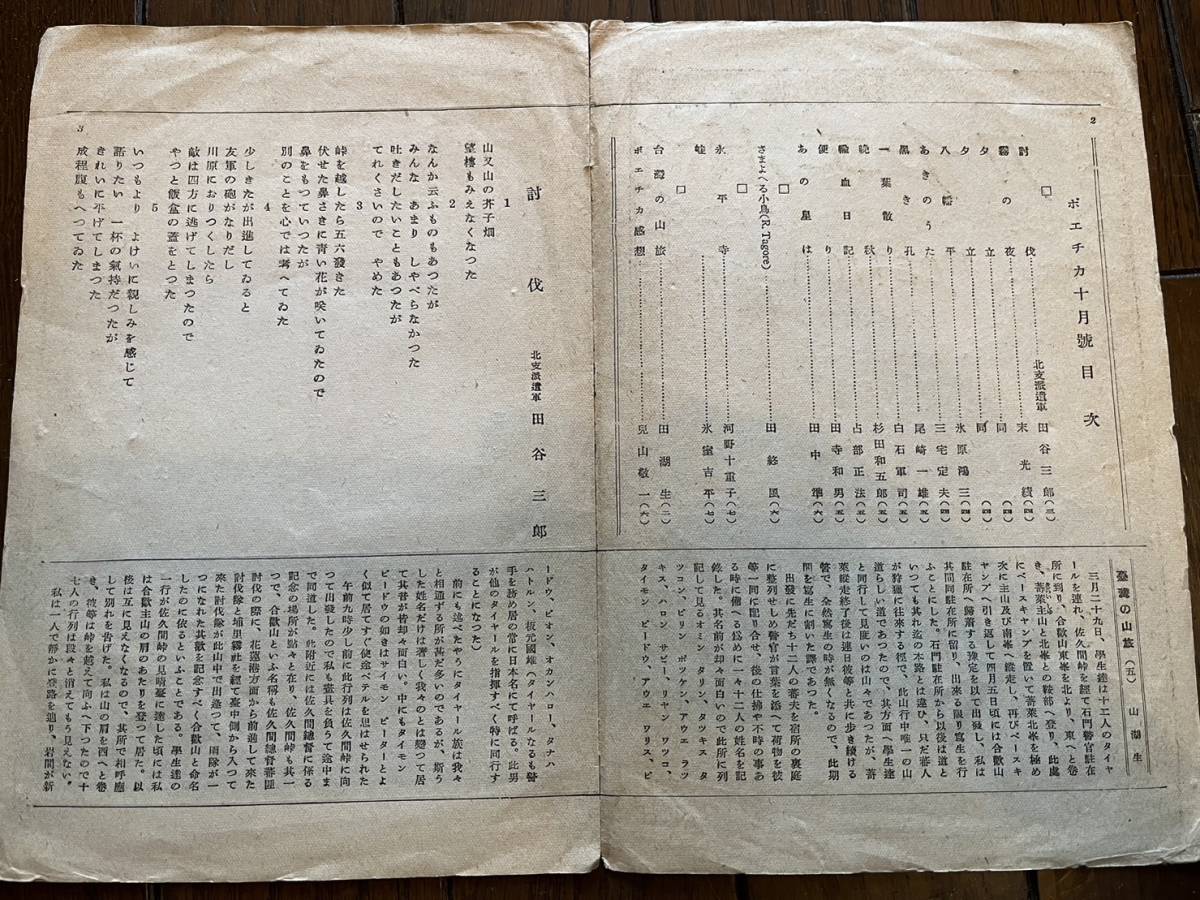 2
ポエチカ十月號目次
□
討伐……北支派遣軍 田谷三郎(三)
霧の夜……末光績(四)
夕立……同(四)
夕立……同(四)
八幡平……氷原鴻三(四)
あきのうた……三宅定夫(四)
黒き孔……尾崎一雄(五)
一葉散り……白石軍司(五)
暁秋……杉田和五郎(五)
輸血日記……占部正法(五)
便り……田寺和男(五)
あの星は……田中準(六)
□
さまよへる小鳥(R. Tagore)……田終風(六)
□
永平寺……河野十重子(七)
蛙……氷室吉平(七)
□
台灣の山旅……田湖生(二)
ポエチカ感想……兒山敬一(六)
臺灣の山旅(五) 山湖生
三月二十九日、學生達は十二人のタイヤ
ールを連れ、佐久間峠を經て石門警官駐在
所に到り、合歡山東峯を北より、東へと卷
き、蕃萊主山と北峯との鞍部へ登り、此處
にベースキヤンプを置いて蕃萊北峯を極め
次に主山及び南峯へ縱走し、再びベースキ
ヤンプへ引き返して四月五日頃には合歡山
駐在所へ歸着する豫定を以て出發し、私は
其間同駐在所に留り、出來る限り寫生を行
ふことにした。石門駐在所から見以後は道と
いつても其れ迄の本路とは違ひ、只だ蕃人
が狩獵に往來する徑で、此山行中唯一の山
道らしい道であつたので、其方面へ學生達
と同行して見度いのは山々であつたが、蕃
萊縱走終了後は連日彼等と共に步き續ける
譽で、全然寫生の時が無くなるので、此期
間を寫生に割いた譯であつた。
出發に先だち十二人の蕃夫を宿所の裏庭
に整列せしめ警官が言葉を添へて荷物を彼
等一同に配り合せ、後の仕拂や不時の事あ
る時に備へる爲めに一々十二人の姓名を記
錄した。其名前が却々面白いので此所に列
記して見るオミン タリン、タツキス タ
ツコン、ピリン ポケン、アウエ ラツ
キス、ハロン サビー、リヤン ワツコ、
タイモン ビードウ、アウエ ワリス、ビ
3
討伐
北支派遣軍 田谷三郎
1
山又山の芥子畑
望樓もみえなくなつた
2
なんか云ふものもあつたが
みんな あまり しやべらなかつた
吐きだしたいこともあつたが
てれくさいので やめた
3
峠を越したら五六發きた
伏せた鼻さきに靑い花が咲いてゐたので
鼻をもつていつたが
別のことを心では考へてゐた
4
少しきたが出進してゐると
友軍の砲がなりだし
川原におりつくしたら
敵は四方に逃げてしまつたので
やつと飯盒の蓋をとつた
5
いつもより よけいに親しみを感じて
語りたい 一杯の氣持だつたが
きれいに平げてしまつた
成程腹もへつてゐた
ードウ、ピオン、オカンハロー、タナハ
ハトルン、板元國雄(タイヤールなるも警
手を務め居の常に日本名にて呼ばる。此男
が他のタイヤールを指揮すべく特に同行す
ることになつた)
前にも述べたやうにタイヤール族は我々
と相通ずる所が甚だ多いのであるが、斯う
した姓名だけは著しく我々のとは變つて居
て其昔が皆却々面白い。中にもタイモン
ビードウの如きはサイモン ピーターとよ
く似て居てすぐ使途ペテルを思はせられた
午前九時少し前に此行列は佐久間峠に向
つて出發したので私も畫具を負うて途中ま
で同道した。此附近には佐久間總督に係る
記念の場所が點々と在り、佐久間峠も其一
つで、合歡山といふ名稱も佐久間總督蕃匪
討伐の際に、花蓮港方面から前進して來た
討伐隊と埔里霧社を經て臺中側から入つて
來た討伐隊が此山中で出逢つて、兩隊が一
つになれた其歡を記念すべく合歡山と命名
したのに依るといふことである。學生達の
一行が佐久間峠の見晴臺に達した頃には私
は合歡主山の肩のあたりを登つて居た。以
後は互に見えなくなるので、其所で相呼應
して別れを告げた。私は山の肩を西へと卷
き、彼等は峠を越えて向ふへ下つたので十
七人の行列は段々と消えてもう見えない。
私は一人で靜かに登路を辿り、岩間が新